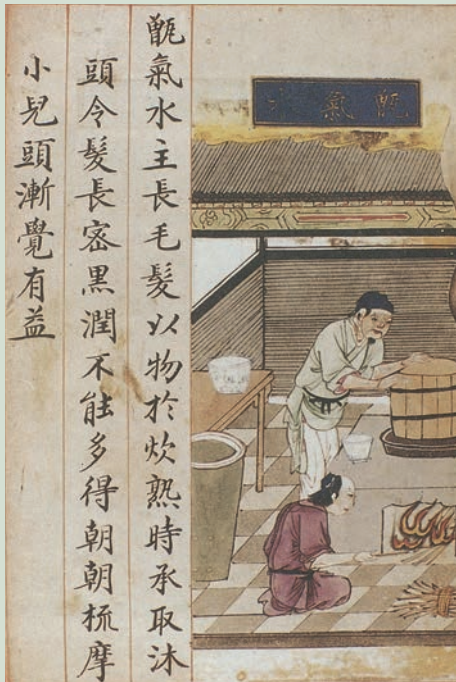 甑氣水
甑氣水主長毛髮以物於炊熟時承取沐
頭令髮長宻黑潤不能多得朝朝梳摩
小兒頭漸覺有益